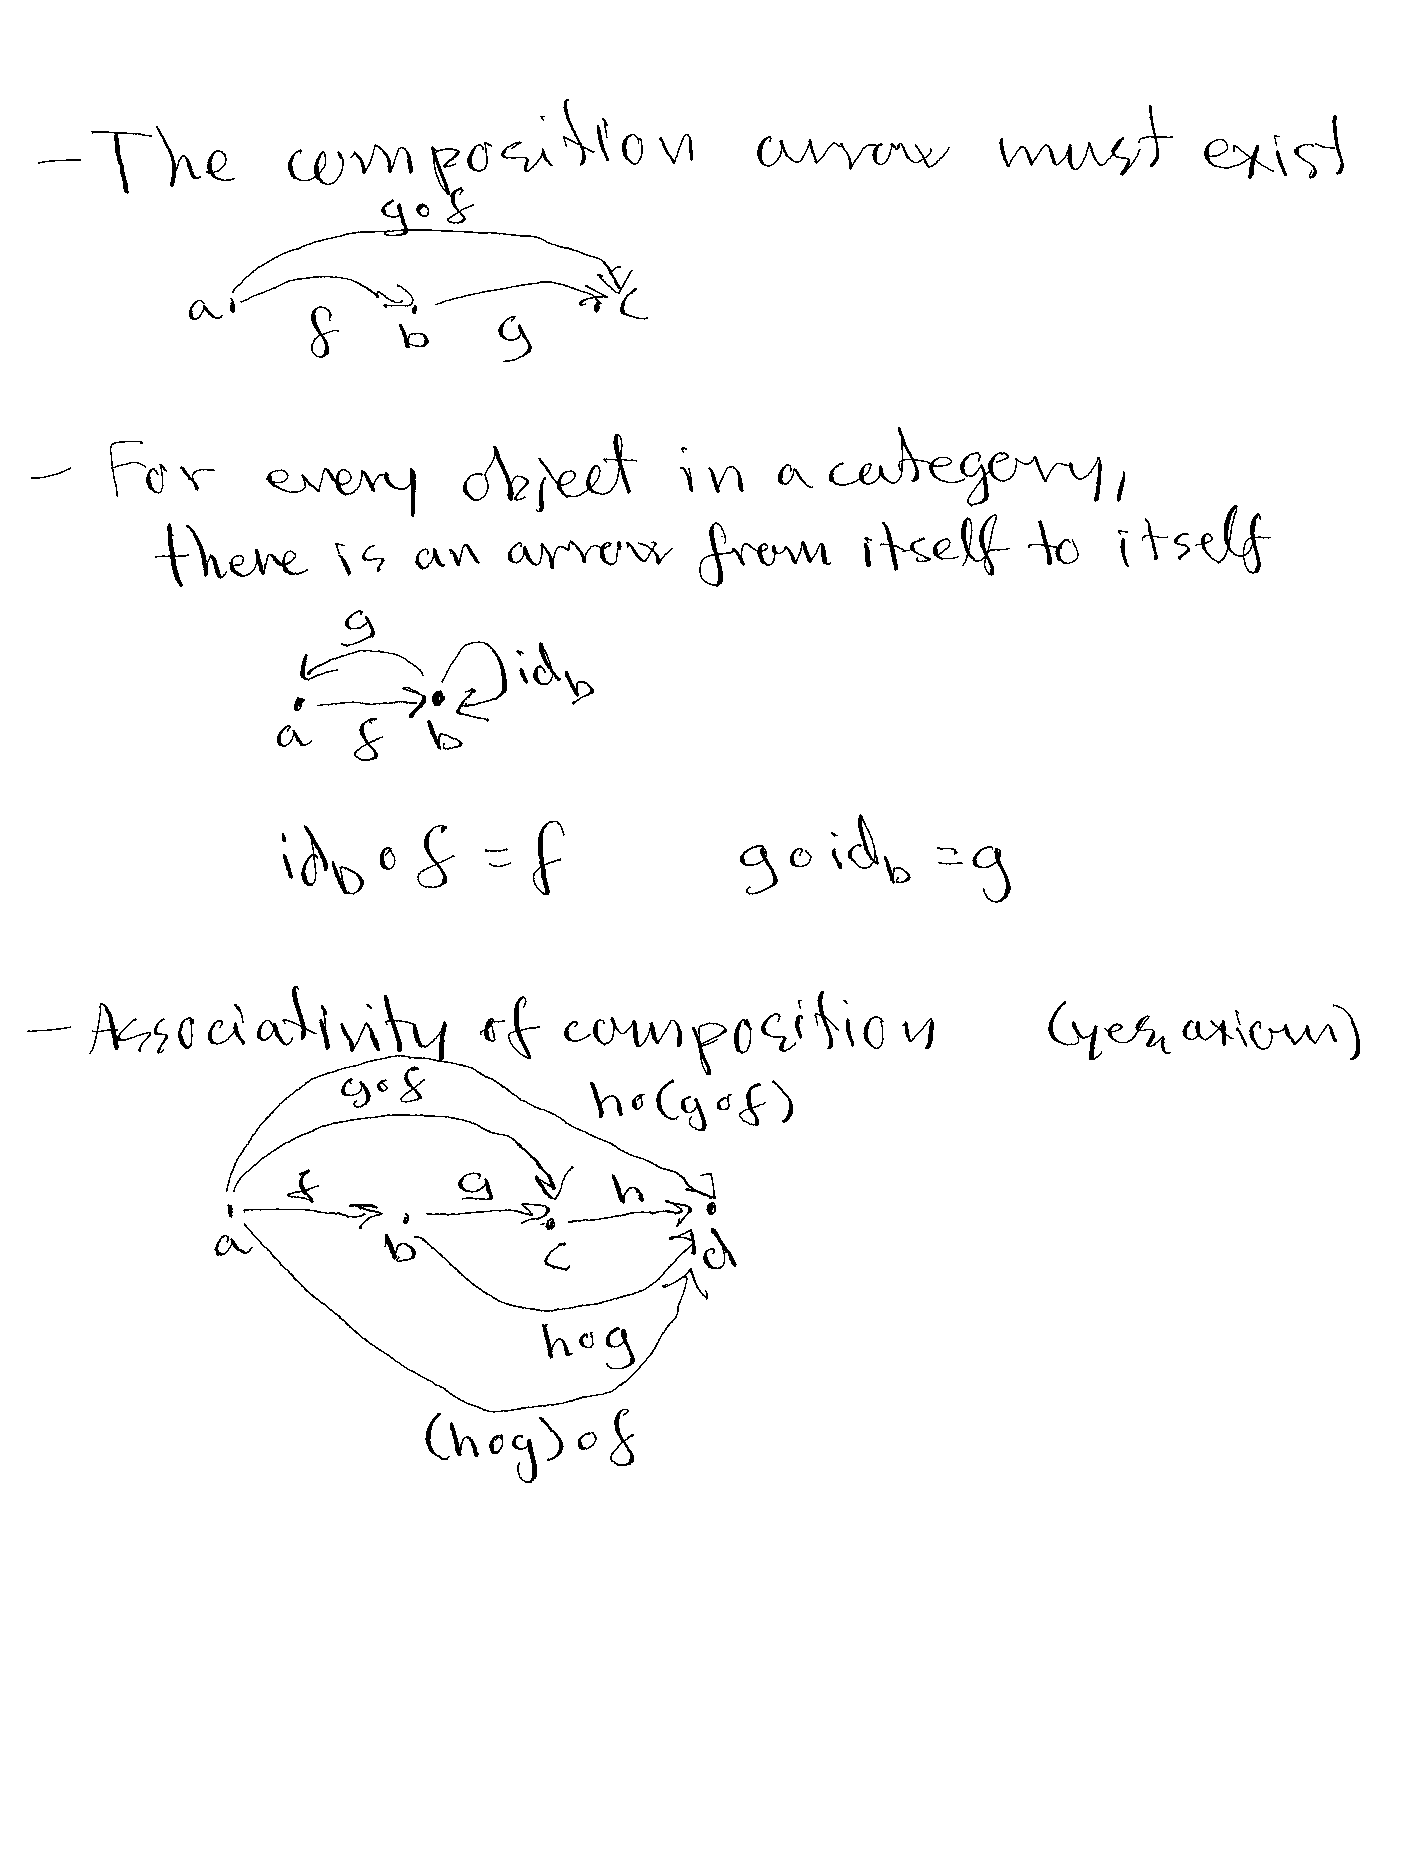 - The composition arrow must exist
g∘f
a f b g c
- For every object in a category,
there is an arrow from itself to itself
g
id_b
a f b
id_b ∘ f = f g ∘ id_b = g
- Associativity of composition (yes, axiom)
g∘f h∘(g∘f)
f g h
a b c d
h∘g
(h∘g)∘f